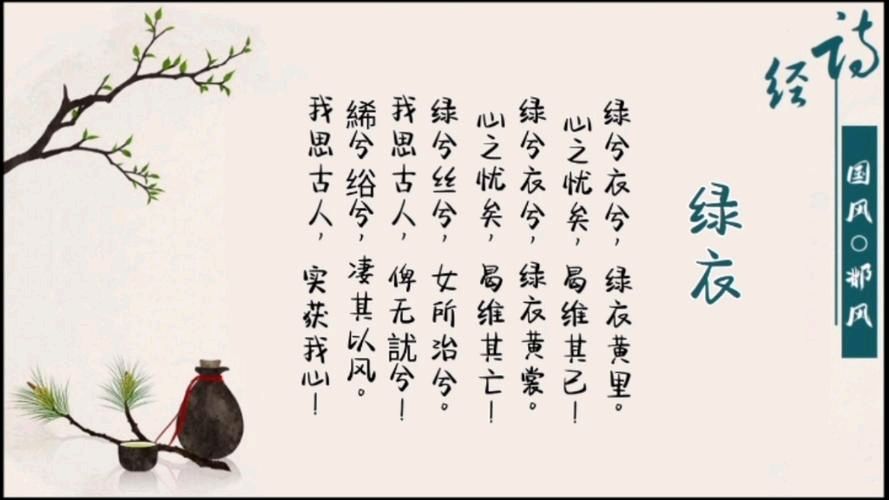 诗经
国风○邶风
绿衣
绿兮衣兮，绿衣黄里。
心之忧矣，曷维其已！
绿兮衣兮，绿衣黄裳。
心之忧矣，曷维其亡！
绿兮丝兮，女所治兮。
我思古人，俾无訧兮！
絺兮绤兮，凄其以风。
我思古人，实获我心！